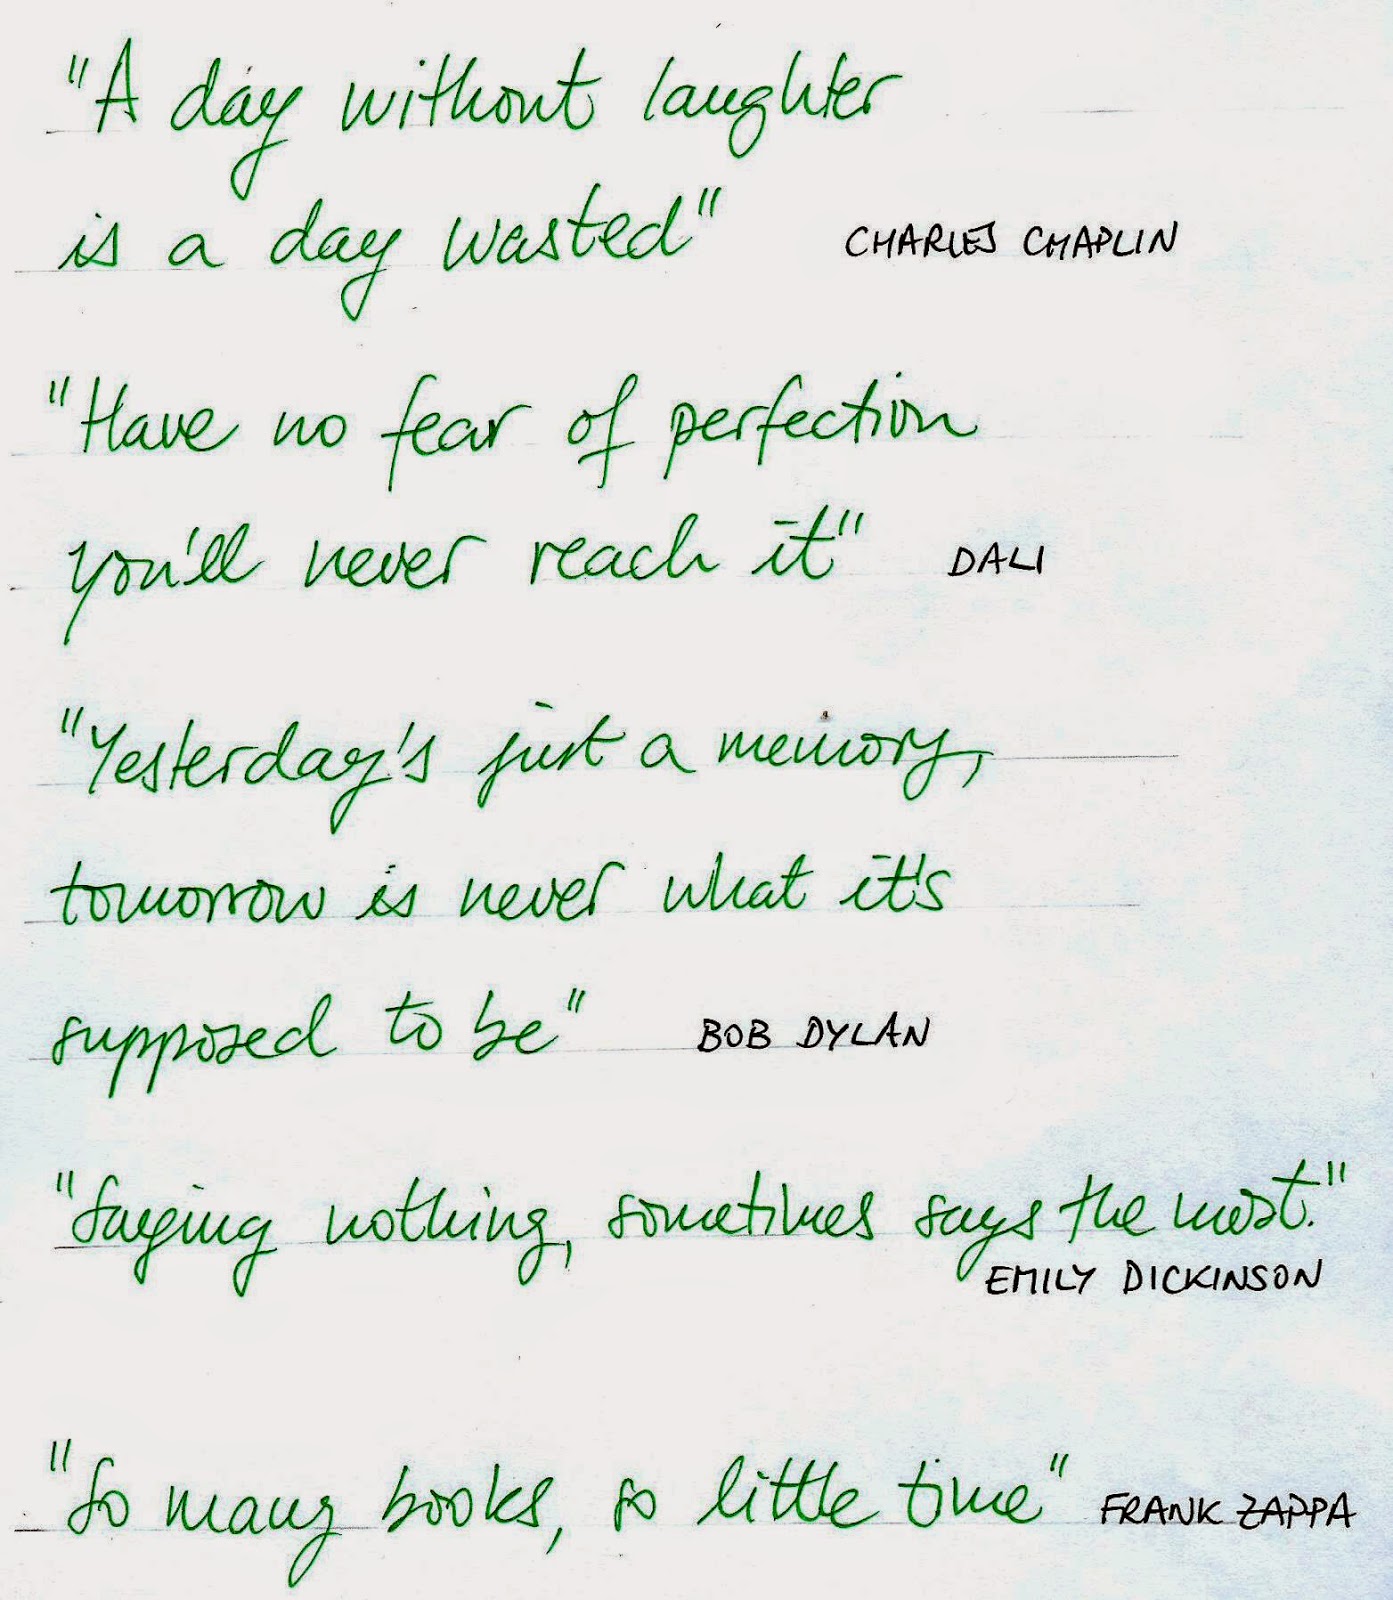 "A day without laughter
is a day wasted" CHARLES CHAPLIN
"Have no fear of perfection
you'll never reach it" DALI
"Yesterday's just a memory,
tomorrow is never what it's
supposed to be" BOB DYLAN
"Saying nothing, sometimes says the most."
EMILY DICKINSON
"So many books, so little time" FRANK ZAPPA